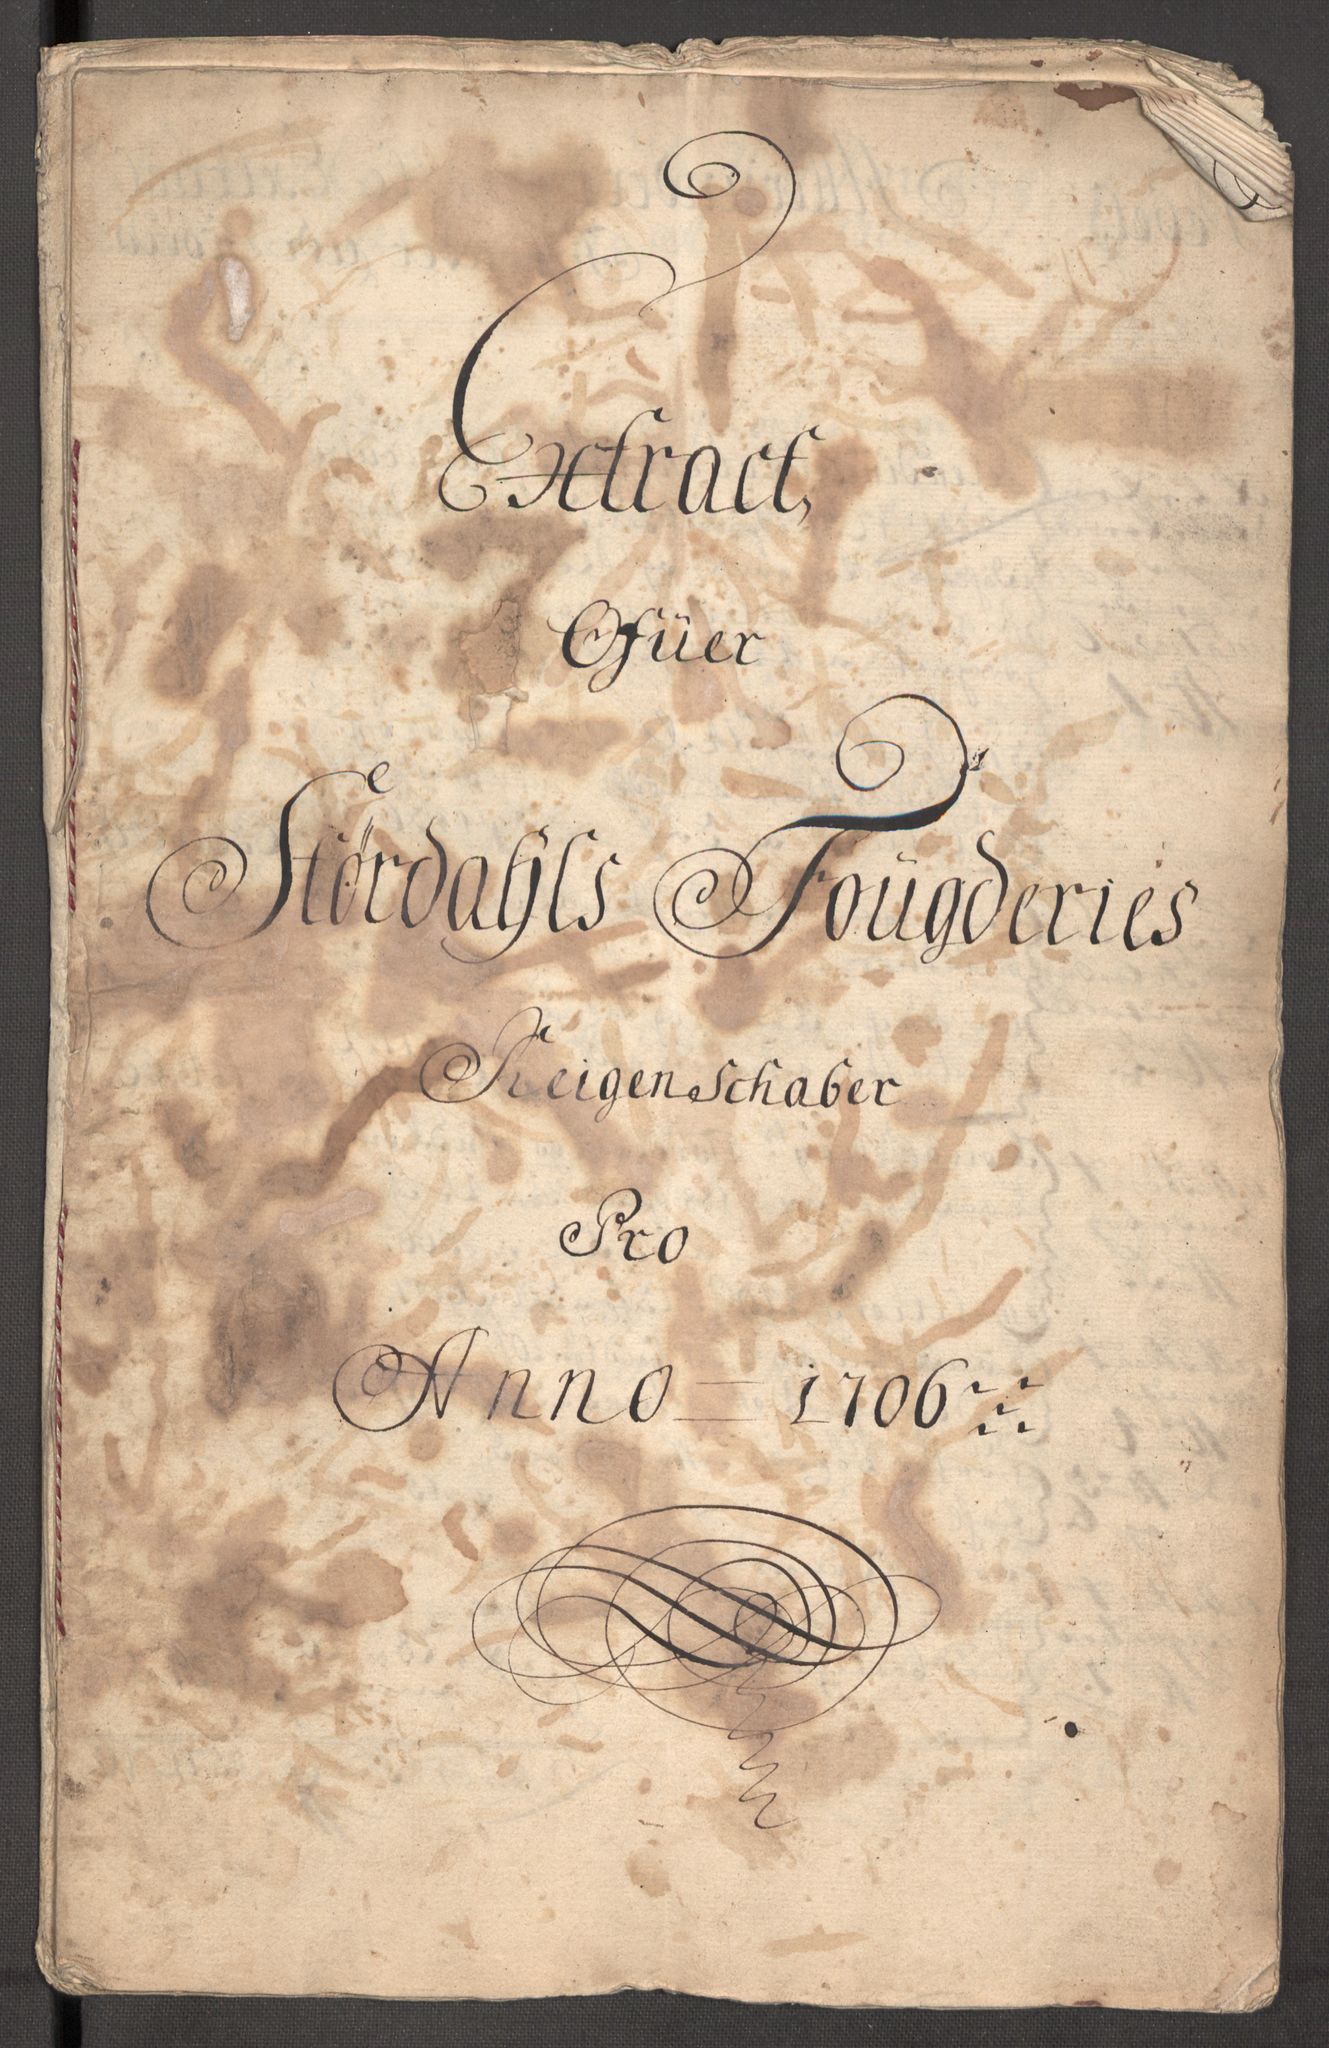 Extract,
Ofüer
Størdahls Fougderies
Reigenschaber
Pro
Anno = 1706